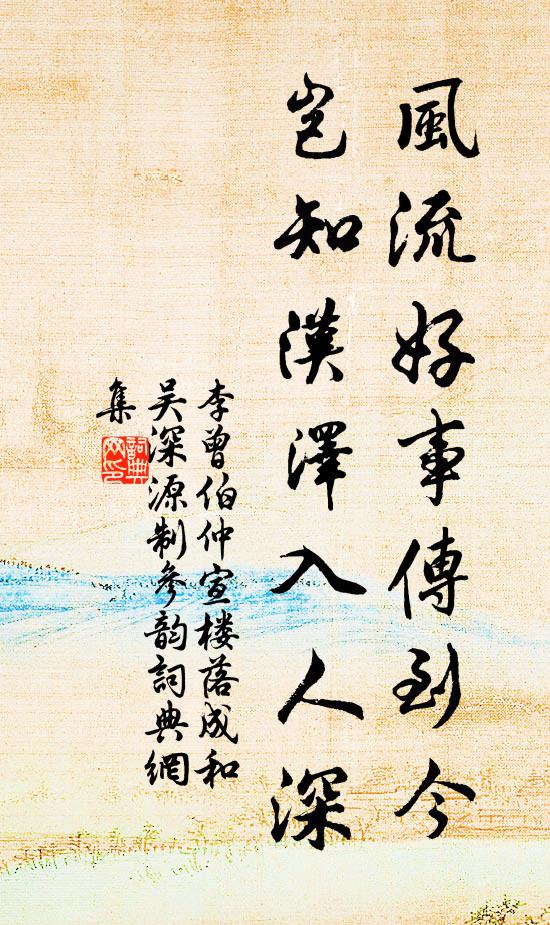 風流好事傳到今
豈知漢澤入人深
李曾伯仲宣楼落成和
吴深源制參韵詞典網
集
詞典